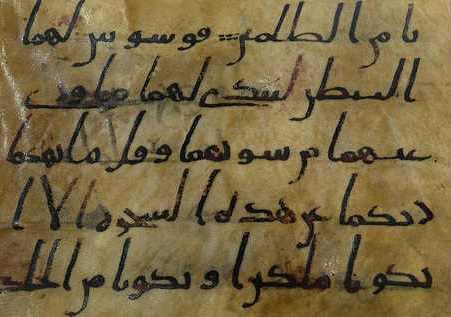 نا من الظلمين فوسوس لهما
الشيطن ليبدي لهما ما وري
عنهما من سوتهما وقل ما نهكما
ربكما عن هذه الشجره الا ا
تكونا ملكين او تكونا من الخلد